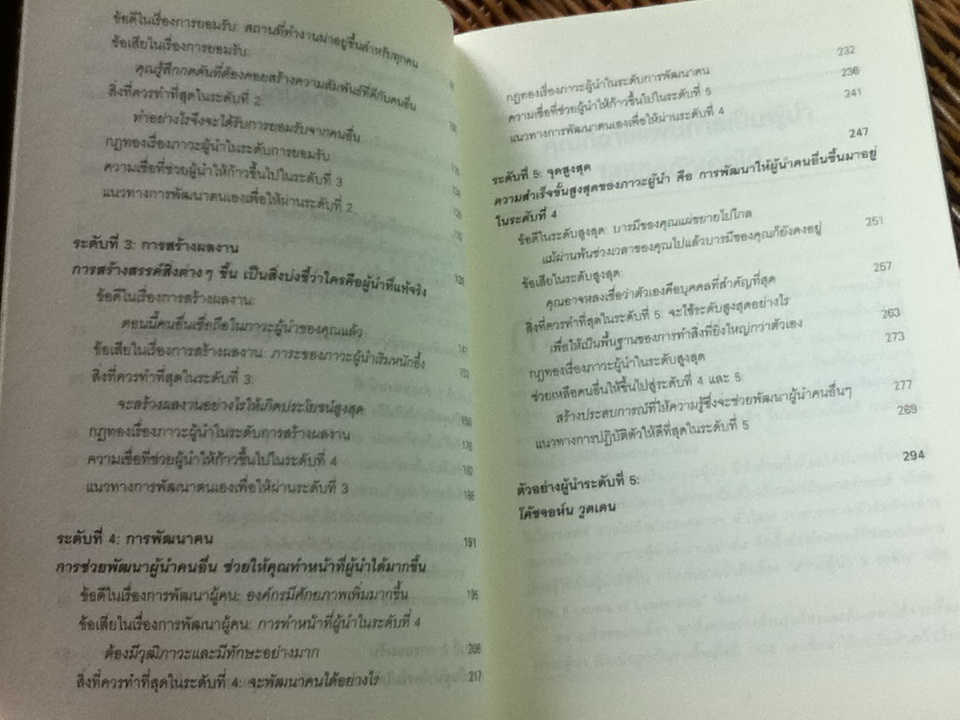 ข้อดีในเรื่องการยอมรับ: สถานที่ทำงานน่าอยู่ขึ้นสำหรับทุกคน
ข้อเสียในเรื่องการยอมรับ:
คุณรู้สึกกดดันที่ต้องคอยสร้างความสัมพันธ์ที่ดีกับคนอื่น
สิ่งที่ควรทำที่สุดในระดับที่ 2:
ทำอย่างไรจึงจะได้รับการยอมรับจากคนอื่น
กฎทองเรื่องภาวะผู้นำในระดับการยอมรับ
ความเชื่อที่ช่วยผู้นำให้ก้าวขึ้นไปในระดับที่ 3
แนวทางการพัฒนาตนเองเพื่อให้ผ่านระดับที่ 2
ระดับที่ 3: การสร้างผลงาน
การสร้างสรรค์สิ่งต่างๆ ขึ้น เป็นสิ่งบ่งชี้ว่าใครคือผู้นำที่แท้จริง
ข้อดีในเรื่องการสร้างผลงาน:
ตอนนี้คนอื่นเชื่อถือในภาวะผู้นำของคุณแล้ว
ข้อเสียในเรื่องการสร้างผลงาน: ภาระของภาวะผู้นำเริ่มหนักอึ้ง
สิ่งที่ควรทำที่สุดในระดับที่ 3:
จะสร้างผลงานอย่างไรให้เกิดประโยชน์สูงสุด
กฎทองเรื่องภาวะผู้นำในระดับการสร้างผลงาน
ความเชื่อที่ช่วยผู้นำให้ก้าวขึ้นไปในระดับที่ 4 182
แนวทางการพัฒนาตนเองเพื่อให้ผ่านระดับที่ 3
ระดับที่ 4: การพัฒนาคน 191
การช่วยพัฒนาผู้นำคนอื่น ช่วยให้คุณทำหน้าที่ผู้นำได้มากขึ้น
ข้อดีในเรื่องการพัฒนาผู้คน: องค์กรมีศักยภาพเพิ่มมากขึ้น
ข้อเสียในเรื่องการพัฒนาผู้คน: การทำหน้าที่ผู้นำในระดับที่ 4
ต้องมีวุฒิภาวะและมีทักษะอย่างมาก
สิ่งที่ควรทำที่สุดในระดับที่ 4: จะพัฒนาคนได้อย่างไร 217
กฎทองเรื่องภาวะผู้นำในระดับการพัฒนาคน 232
ความเชื่อที่ช่วยผู้นำให้ก้าวขึ้นไปในระดับที่ 5 236
แนวทางการพัฒนาตนเองเพื่อให้ผ่านระดับที่ 4 241
ระดับที่ 5: จุดสูงสุด 247
ความสำเร็จขั้นสูงสุดของภาวะผู้นำ คือ การพัฒนาให้ผู้นำคนอื่นขึ้นมาอยู่
ในระดับที่ 4
ข้อดีในระดับสูงสุด: บารมีของคุณแผ่ขยายไปไกล
แม้ผ่านพ้นช่วงเวลาของคุณไปแล้วบารมีของคุณก็ยังคงอยู่ 251
ข้อเสียในระดับสูงสุด:
คุณอาจหลงเชื่อว่าตัวเองคือบุคคลที่สำคัญที่สุด 257
สิ่งที่ควรทำที่สุดในระดับที่ 5: จะใช้ระดับสูงสุดอย่างไร
เพื่อให้เป็นพื้นฐานของการทำสิ่งที่ยิ่งใหญ่กว่าตัวเอง 263
กฎทองเรื่องภาวะผู้นำในระดับสูงสุด 273
ช่วยเหลือคนอื่นให้ขึ้นไปสู่ระดับที่ 4 และ 5:
สร้างประสบการณ์ที่ให้ความรู้ซึ่งจะช่วยพัฒนาผู้นำคนอื่นๆ 277
แนวทางการปฏิบัติตัวให้ดีที่สุดในระดับที่ 5 289
ตัวอย่างผู้นำระดับที่ 5: 294
โค้ชจอห์น วูดเดน